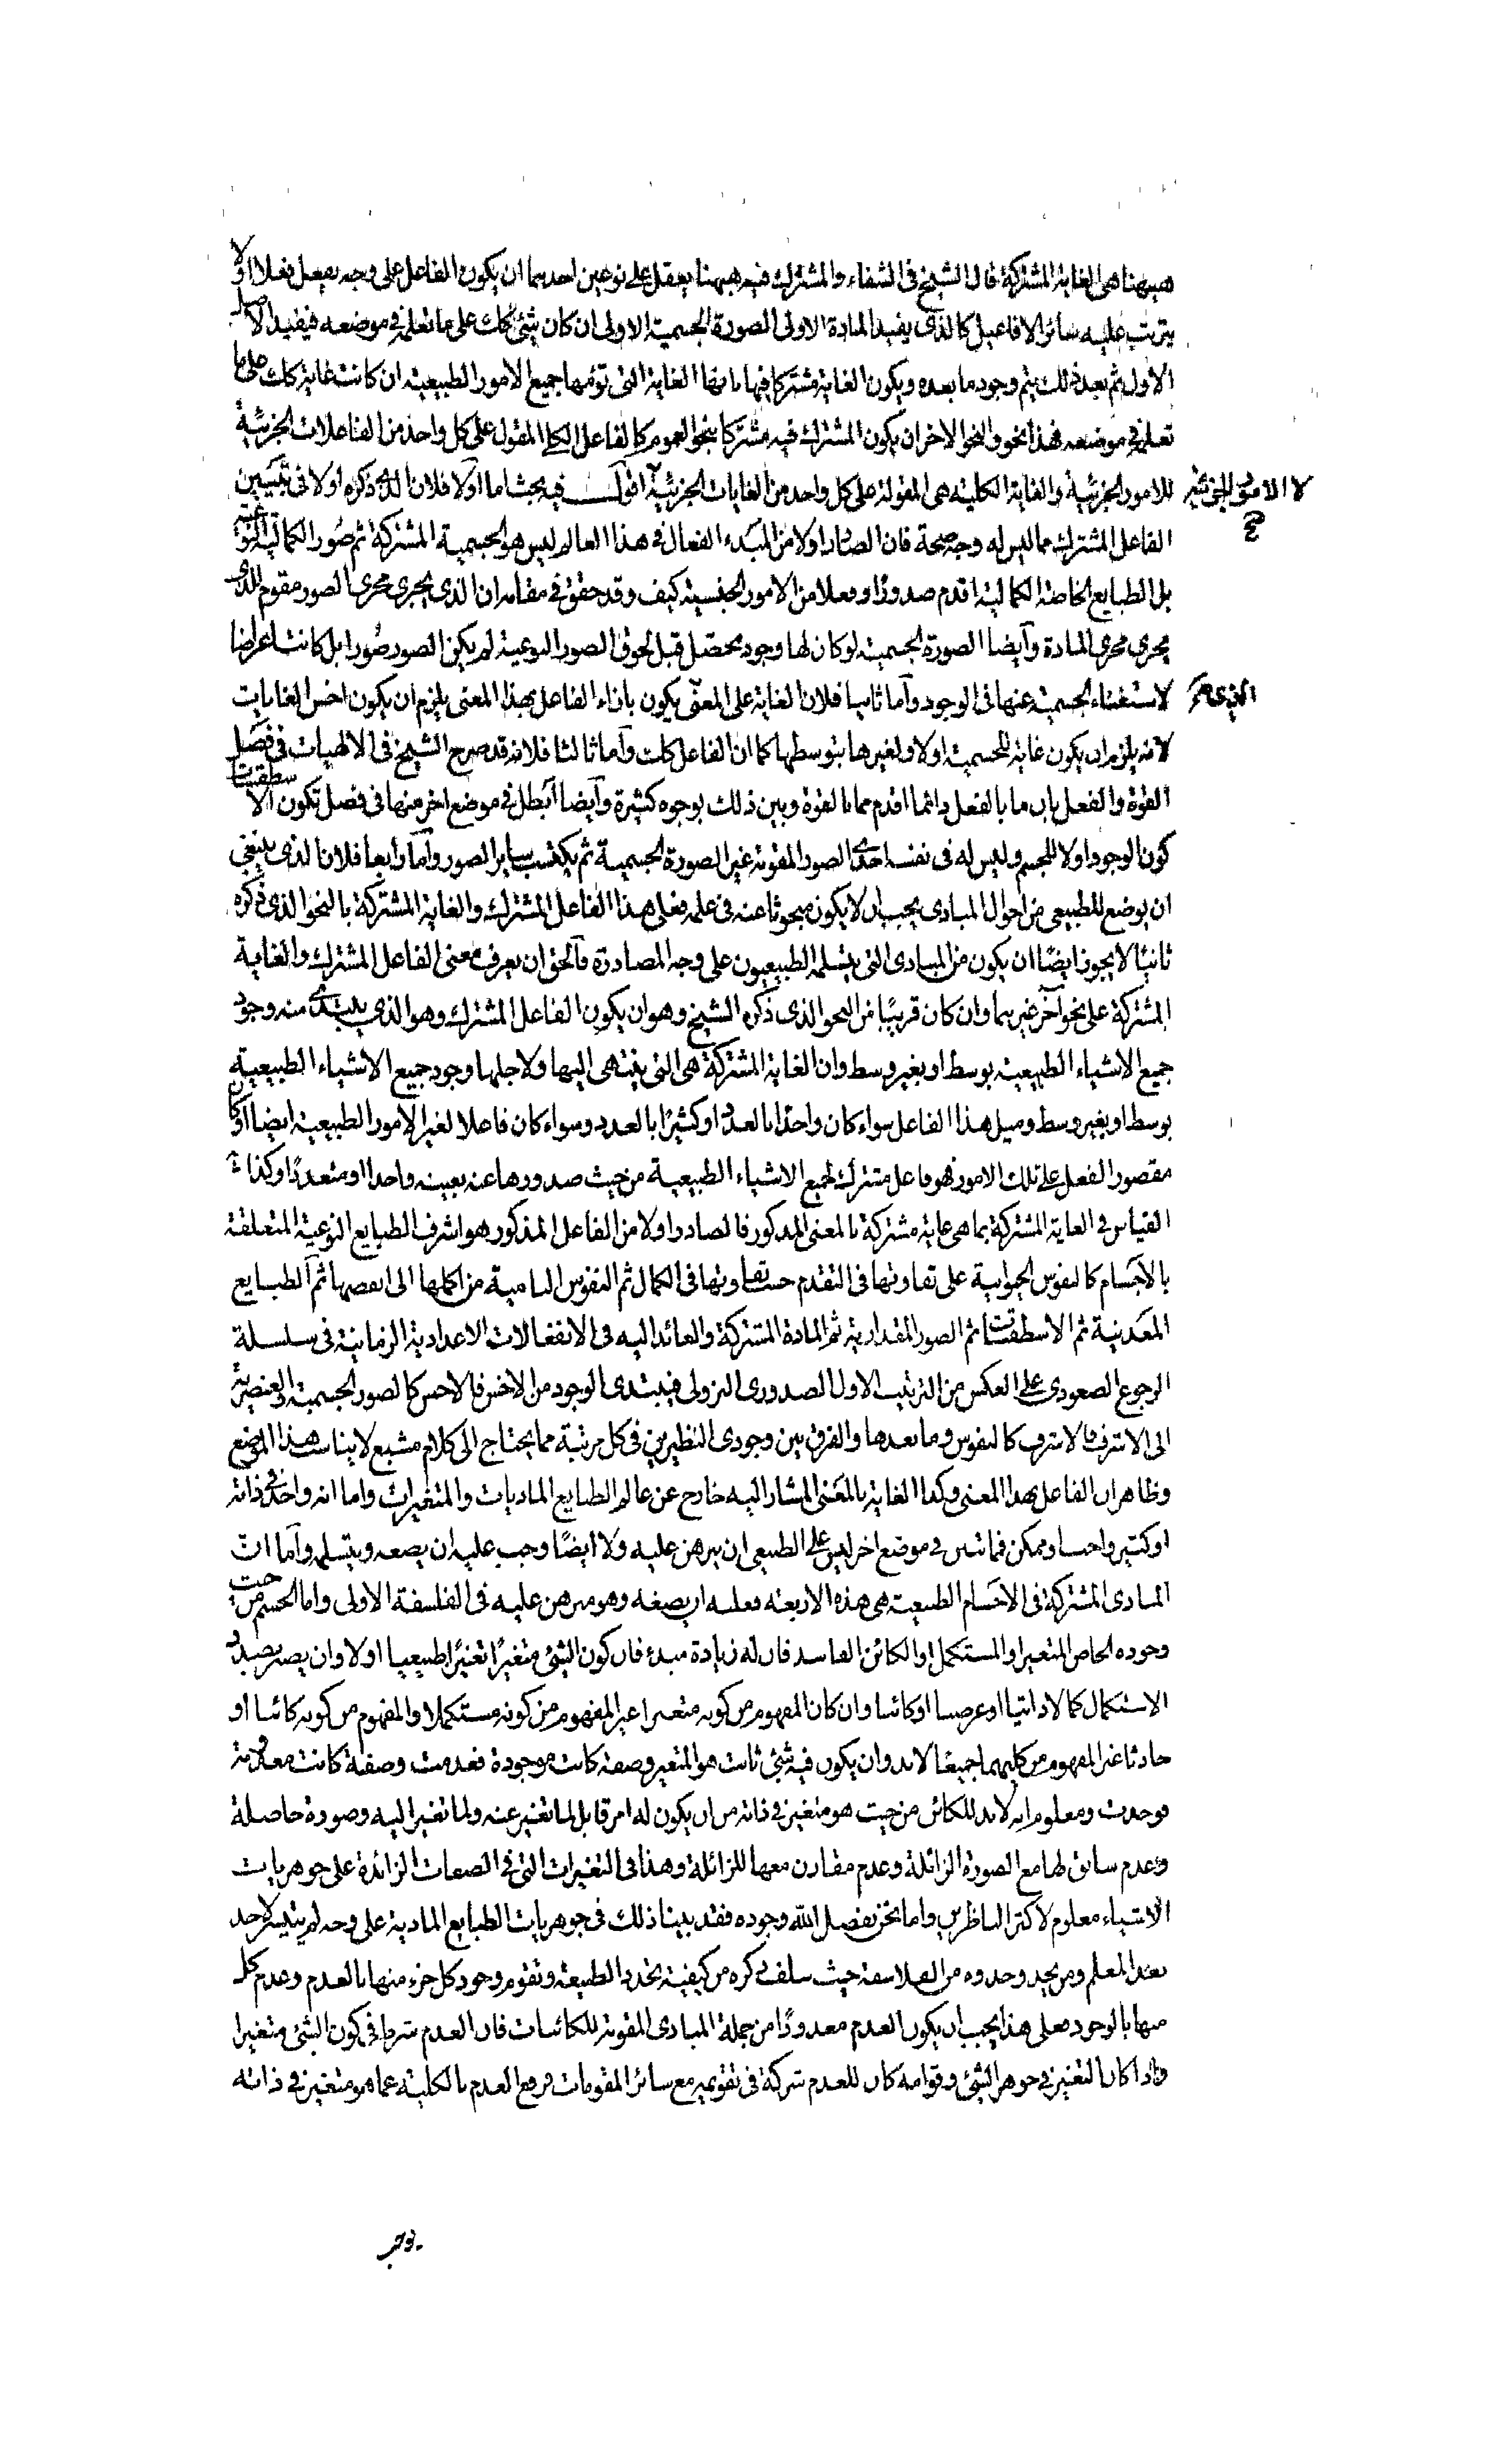 هيهنا هى الغاية المشتركة قال الشيخ فى الشفاء والمشترك فيه هيهنا يعقل على نوعين احدهما ان يكون الفاعل على وجه يفعل فعلا اولا
يترتب عليه سائر الافاعيل كالذى يفيد المادة الاولى الصورة الجسمية الاولى ان كان شئ كك على ما تعلمه فى موضعه فيفيد الاصل
الاول ثم بعد ذلك يتم وجود ما بعده ويكون الغاية مشتركا فيها بانها الغاية التى تؤمها جميع الامور الطبيعية ان كانت غاية كك على ما
تعلمه فى موضعه فهذا نحو والنحو الاخر ان يكون المشترك فيه مشتركا بنحو العموم كالفاعل الكلى المقول على كل واحد من الفاعلات الجزئية
للامور الجزئية والغاية الكلية هى المقولة على كل واحد من الغايات الجزئية اقول فيه بحث اما اولا فلان الذى ذكره اولا فى تبيين
لا الامور الجزئية
الفاعل المشترك مما ليس له وجه صحة فان الصادر اولا من المبدء الفعال فى هذا العالم ليس هو الجسمية المشتركة ثم صور الكمالية النوعية
بل الطبايع الخاصة الكمالية اقدم صدورا وفعلا من الامور الجنسية كيف وقد حقق فى مقامه ان الذى يجرى مجرى الصور مقوم للذى
يجرى مجرى المادة وايضا الصورة الجسمية لو كان لها وجود محصل قبل لحوق الصور النوعية لم يكن الصور صورا بل كانت اعراضا
لاستغناء الجسمية عنها فى الوجود واما ثانيا فلان الغاية على المعنى يكون بازاء الفاعل بهذا المعنى يلزم ان يكون اخس الغايات
الذى
لانه يلزم ان يكون غاية للجسمية اولا ولغيرها بتوسطها كما ان الفاعل كك واما ثالثا فلانه قد صرح الشيخ فى الالهيات فى فصل
القوة والفعل بان ما بالفعل دائما اقدم مما بالقوة وبين ذلك بوجوه كثيرة وايضا ابطل فى موضع اخر منها فى فصل تكون الاسطقسات
كون الوجود اولا للجسم وليس له فى نفسه احدى الصور المقومة غير الصورة الجسمية ثم يكتسب ساير الصور واما رابعا فلان الذى ينبغى
ان يوضع للطبيعى من احوال المبادى يجب ان لا يكون مبحوثا عنه فى علمه فعلى هذا الفاعل المشترك والغاية المشتركة بالنحو الذى ذكره
ثانيا لا يجوز ايضا ان يكون من المبادى التى يتسلمه الطبيعيون على وجه المصادرة فالحق ان يعرف معنى الفاعل المشترك والغاية
المشتركة على نحو آخر غيرهما وان كان قريبا من النحو الذى ذكره الشيخ وهو ان يكون الفاعل المشترك وهو الذى يبتدى منه وجود
جميع الاشياء الطبيعية بوسط او بغير وسط وان الغاية المشتركة هى التى ينتهى اليها ولاجلها وجود جميع الاشياء الطبيعية
بوسط او بغير وسط ومثل هذا الفاعل سواء كان واحدا بالعدد او كثيرا بالعدد وسواء كان فاعلا لغير الامور الطبيعية ايضا او كان
مقصور الفعل على تلك الامور فهو فاعل مشترك لجميع الاشياء الطبيعية من حيث صدورها عنه بعينه واحدا او متعددا وكذا
القياس فى الغاية المشتركة بما هى غاية مشتركة بالمعنى المذكور فالصادر اولا من الفاعل المذكور هو اشرف الطبايع النوعية المتعلقة
بالاجسام كالنفوس الحيوانية على تفاوتها فى التقدم حسب تفاوتها فى الكمال ثم النفوس النامية من اكملها الى انقصها ثم الطبايع
المعدنية ثم الاسطقسات ثم الصور المقدارية ثم المادة المشتركة والعائد اليه فى الانفعالات الاعدادية الزمانية فى سلسلة
الرجوع الصعودى على العكس من الترتيب الاول الصدورى النزولى فيبتدى الوجود من الاخس فالاخس كالصور الجسمية والعنصرية
الى الاشرف فالاشرف كالنفوس وما بعدها والفرق بين وجودى النظيرين فى كل مرتبة مما يحتاج الى كلام مشبع لا يناسب هذا الموضع
وظاهر ان الفاعل بهذا المعنى وكذا الغاية بالمعنى المشار اليه خارج عن عالم الطبايع الماديات والمتغيرات واما انه واحد فى ذاته
او كثير واجب او ممكن فمما تبين فى موضع اخر ليس على الطبيعى ان يبرهن عليه ولا ايضا وجب عليه ان يضعه ويتسلمه واما ان
المبادى المشتركة فى الاجسام الطبيعية هى هذه الاربعة فعليه ان يضعه وهو مبرهن عليه فى الفلسفة الاولى واما الجسم من حيث
وجوده الخاص المتغير او المستكمل او الكائن الفاسد فان له زيادة مبدء فان كون الشئ متغيرا تغيرا طبيعيا اولا وان يصير بصدد
الاستكمال كمالا ذاتيا او عرضيا او كائنا وان كان المفهوم من كونه متغيرا غير المفهوم من كونه مستكملا والمفهوم من كونه كائنا او
حادثا غير المفهوم من كليهما جميعا لا بد وان يكون فيه شئ ثابت هو المتغير وصفة كانت موجودة فعدمت وصفة كانت معدومة
فوجدت ومعلوم انه لا بد للكائن من حيث هو متغير فى ذاته من ان يكون له امر قابل لما تغير عنه ولما تغير اليه وصورة حاصلة
وعدم سابق لها مع الصورة الزائلة وعدم مقارن معها للزائلة وهذا فى التغيرات التى فى الصفات الزائدة على جوهريات
الاشياء معلوم لاكثر الناظرين واما نحن بفضل الله وجوده فقد بينا ذلك فى جوهريات الطبايع المادية على وجه لم يتيسر لاحد
بعد المعلم ومن يحذو حذوه من الفلاسفة حيث سلف ذكره من كيفية تجدد الطبيعة وتقوم وجود كل جزء منها بالعدم وعدم كل
منها بالوجود فعلى هذا يجب ان يكون العدم معدودا من جملة المبادى المقومة للكائنات فان العدم شرط فى كون الشئ متغيرا
واذا كان التغير فى جوهر الشئ وقوامه كان للعدم شركة فى تقويمه مع سائر المقومات فرفع العدم بالكلية عما هو متغير فى ذاته